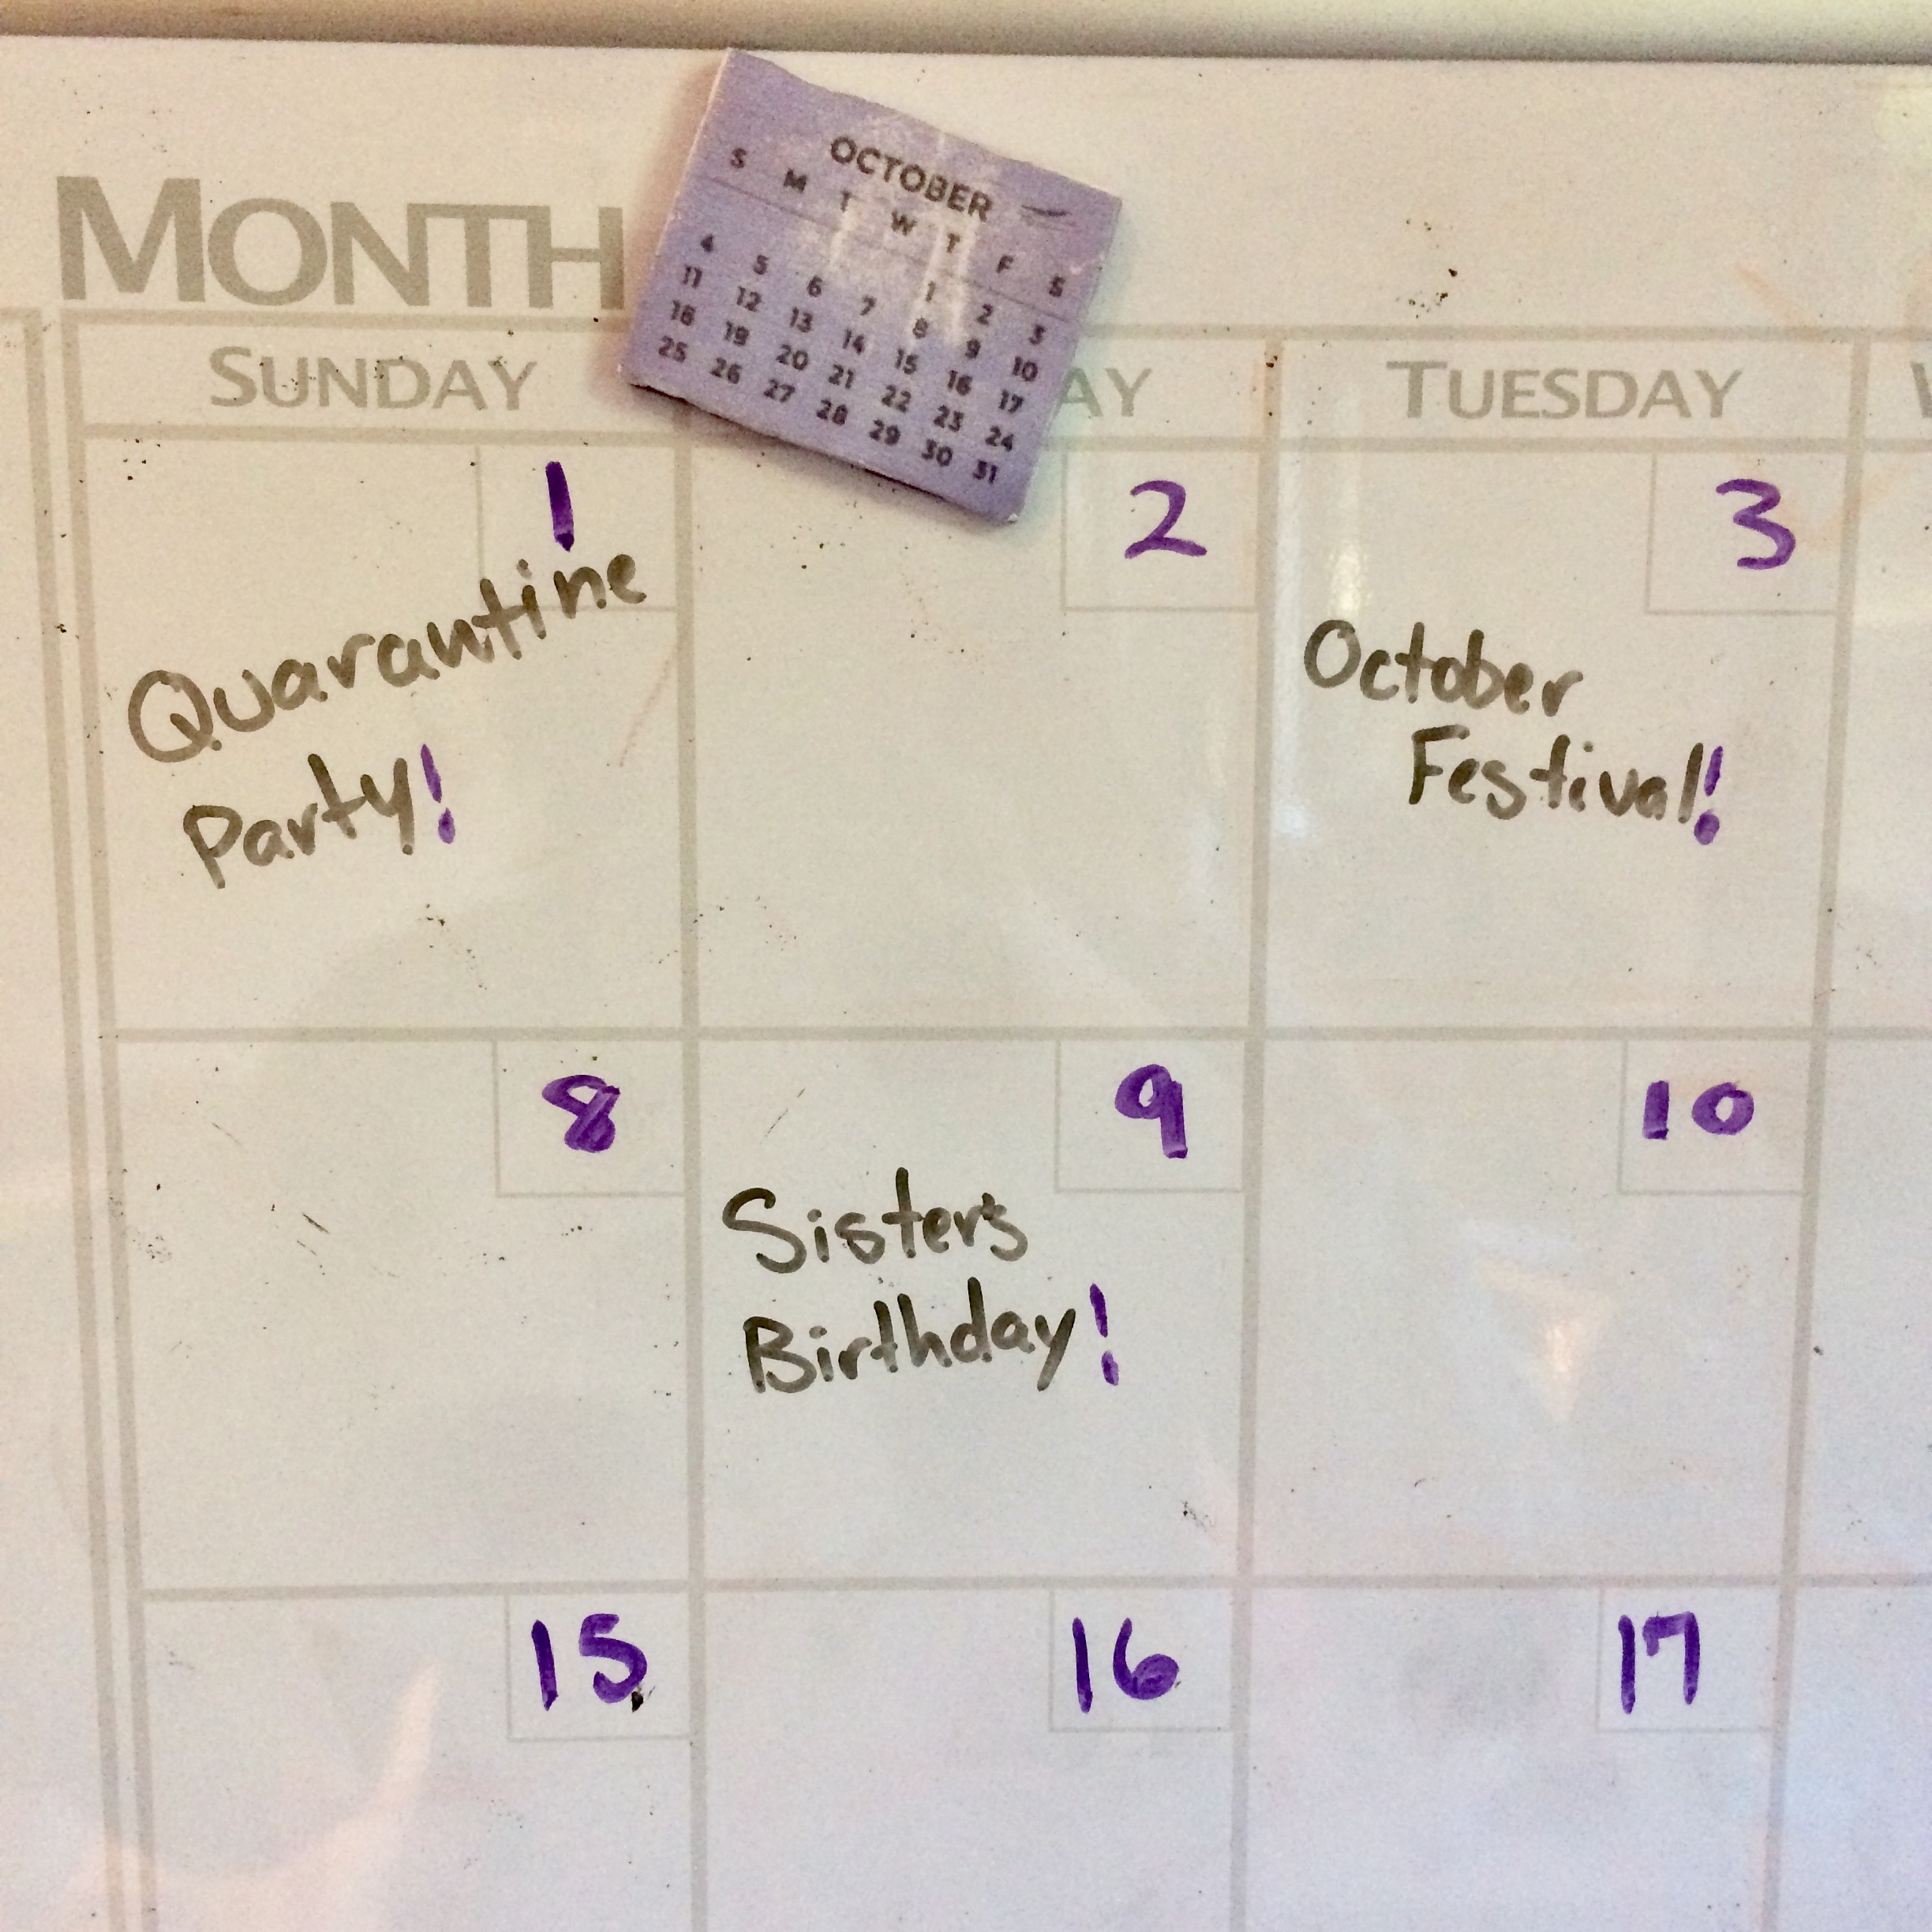 MONTH
OCTOBER
S M T W T F S
1 2 3
4 5 6 7 8 9 10
11 12 13 14 15 16 17
18 19 20 21 22 23 24
25 26 27 28 29 30 31
SUNDAY AY TUESDAY
1 2 3
Quarantine
Party!
October
Festival!
8 9 10
Sister's
Birthday!
15 16 17